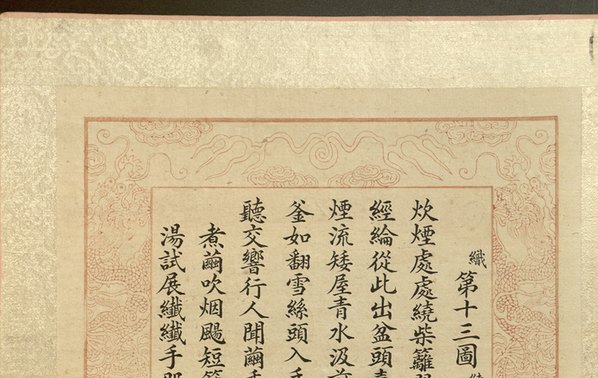 織第十三圖
炊煙處處繞柴籬
經綸從此出盆頭
煙流矮屋青水汲
釜如翻雪絲頭入手
聽交響行人聞繭
煮繭吹烟颺短
湯試展纖纖手